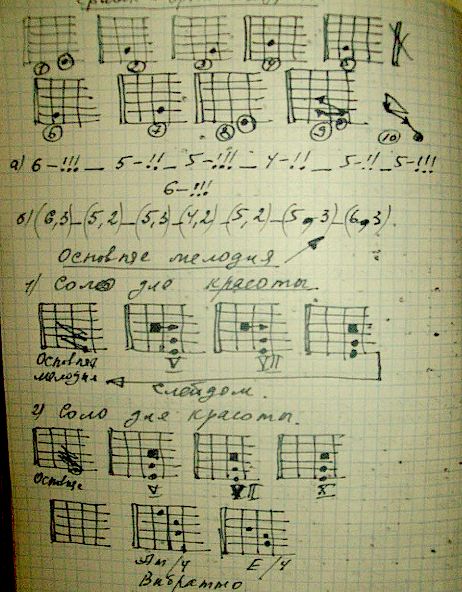 1 2 3 4 5
6 7 8 9 10
а) 6-!!! _ 5-!! _ 5-!!! _ 4-!! _ 5-!! _ 5-!!!
6-!!!
б) (6,3)_(5,2)_(5,3)_(4,2)_(5,2)_(5,3)_(6,3).
Основная мелодия
1) Соло для красоты.
Основная мелодия
V VII
слейдом.
2) Соло для красоты.
V VII X
Am/4 E/4
Вибратто